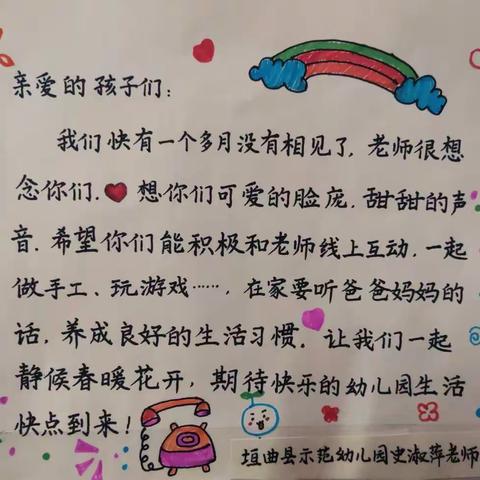 亲爱的孩子们：
我们快有一个多月没有相见了，老师很想
念你们. 想你们可爱的脸庞. 甜甜的声
音. 希望你们能积极和老师线上互动. 一起
做手工、玩游戏……，在家要听爸爸妈妈的
话，养成良好的生活习惯. 让我们一起
静候春暖花开，期待快乐的幼儿园生活
快点到来！
垣曲县示范幼儿园史淑萍老师